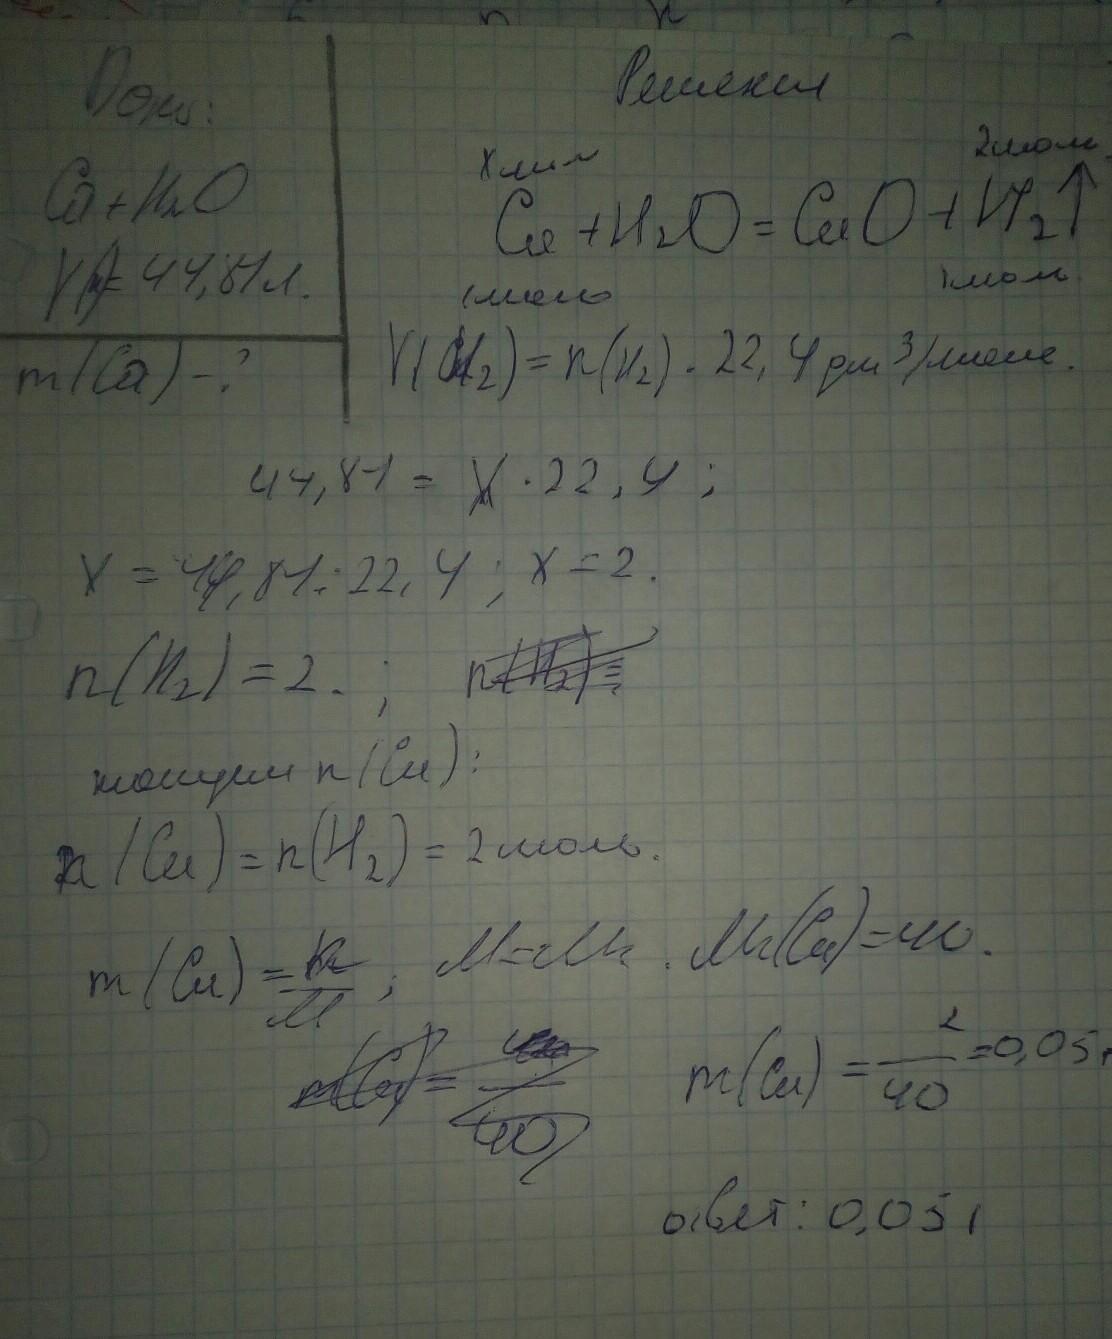 Дано:
Решения
Ca + H₂O
V(H)= 44,81 л.
m(Ca) - ?
2 моль
X моль
Ca + H₂O = CaO + H₂↑
1 моль
1 моль
V(H₂) = n(H₂) · 22,4 дм³/моль.
44,81 = X · 22,4 ;
X = 44,81 : 22,4 ; X = 2.
n(H₂) = 2. ;
n(Ca) :
n(Ca) = n(H₂) = 2 моль.
m(Ca) = n/M ; M = Mr . Mr(Ca) = 40.
m(Ca) = 2/40 = 0,05 г
ответ: 0,05 г